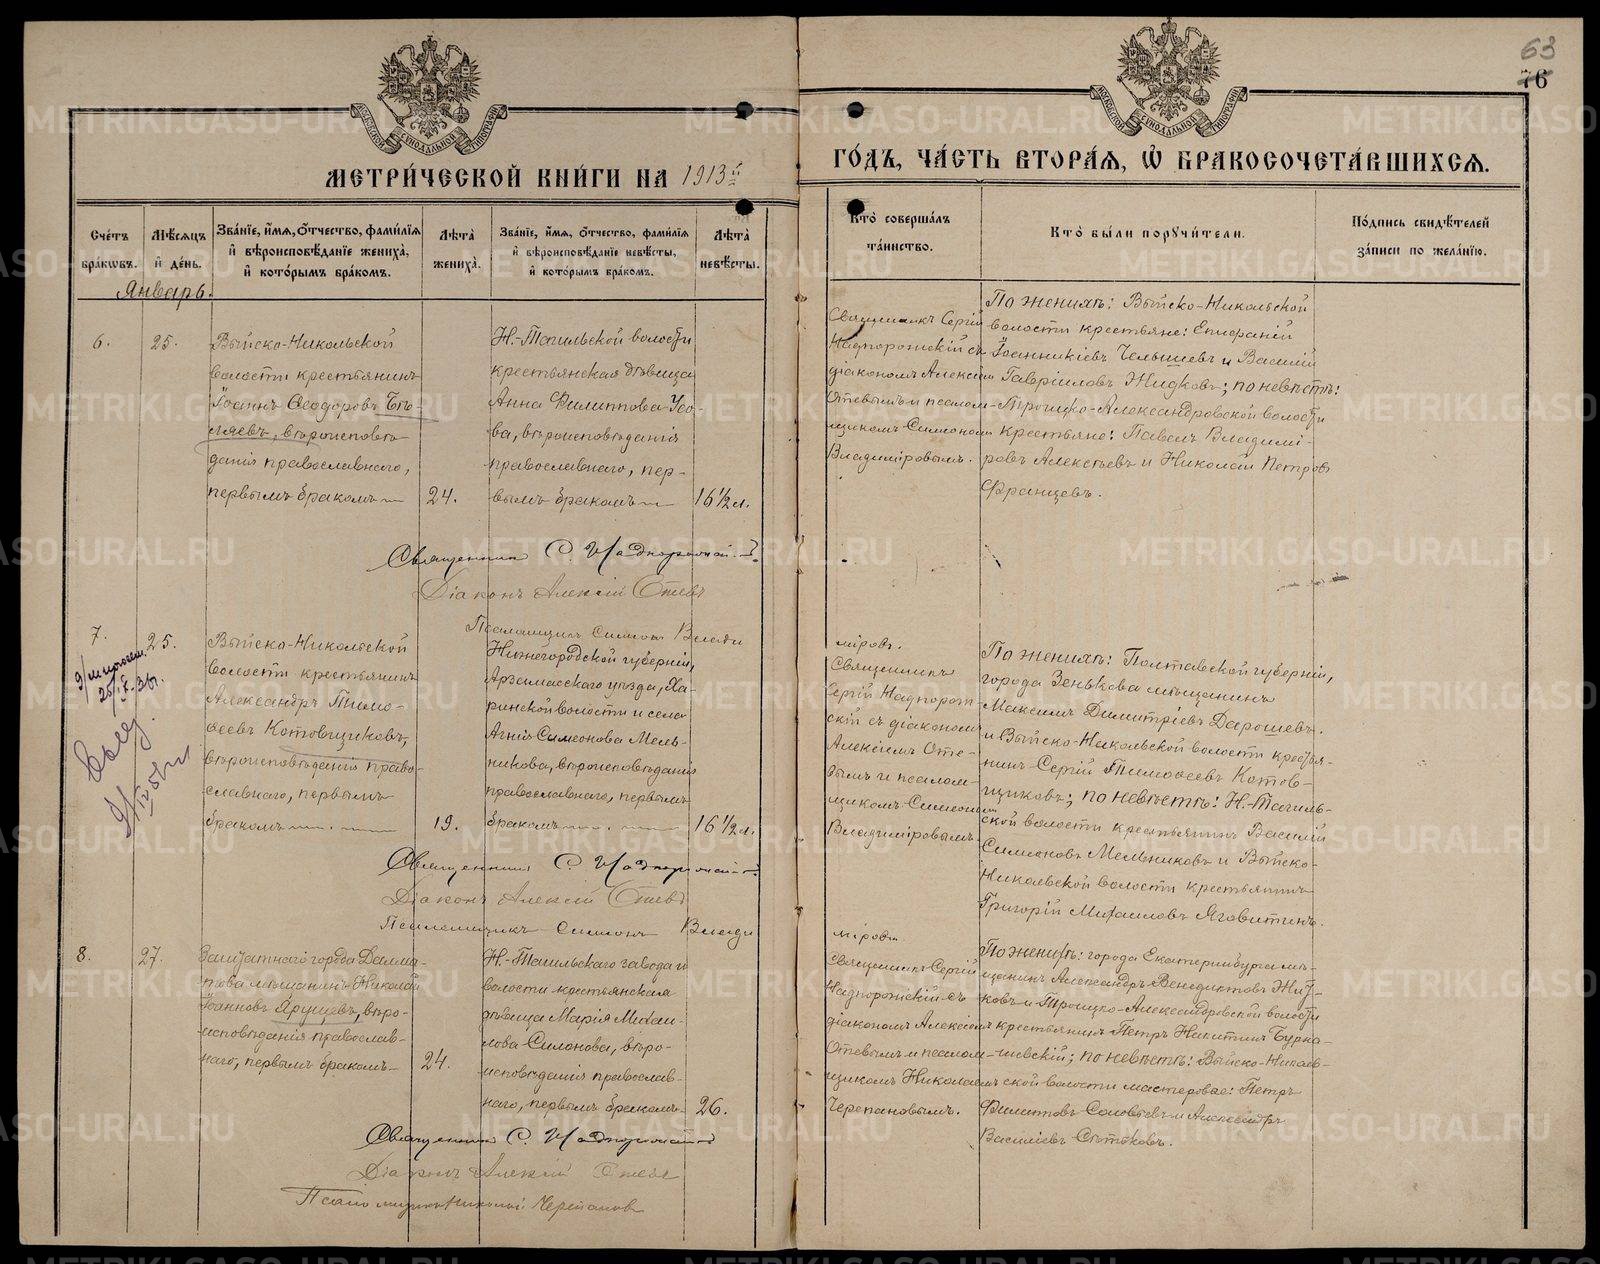 63
76
МЕТРИ́ЧЕСКОЙ КНИ́ГИ НА 1913й
ГО́ДЪ, ЧА́СТЬ ВТОРА́Ѧ, Ѡ҆ БРАКОСОЧЕТА́ВШИХСѦ.
Сче́тъ бра́кѡвъ.
Мѣ́сѧцъ и҆ де́нь.
Зва́нїе, и҆́мѧ, ѻ҆́тчество, фами́лїѧ
и҆ вѣроисповѣ́данїе жениха̀,
и҆ кото́рымъ бра́комъ.
Лѣ́та жениха̀.
Зва́нїе, и҆́мѧ, ѻ҆́тчество, фами́лїѧ
и҆ вѣроисповѣ́данїе невѣ́сты,
и҆ кото́рымъ бра́комъ.
Лѣ́та невѣ́сты.
Кто̀ соверша́лъ
та́инство.
Кто̀ бы́ли порꙋчи́тели.
По́дпись свидѣ́телей
за́писи по жела́нїю.
Январь.
6.
25.
Выйско-Никольской
волости крестьянинъ
Іоаннъ Ѳеодоровъ Бѣ-
ляевъ, вѣроисповѣ-
данія православнаго,
первымъ бракомъ
24.
Н.-Тагильской волости
крестьянская дѣвица
Анна Филиппова Усо-
ва, вѣроисповѣданія
православнаго, пер-
вымъ бракомъ
16 1/2 л.
Священникъ Сергій
Надпорожскій съ
діакономъ Алексіемъ
Отевымъ и псалом-
щикомъ Симеономъ
Владиміровымъ.
По женихѣ: Выйско-Никольской
волости крестьяне: Епифаній
Іоанникіевъ Челышевъ и Василій
Гавріиловъ Жидковъ; по невѣстѣ:
Троицко-Александровской волости
крестьяне: Павелъ Владимі-
ровъ Алексѣевъ и Николай Петровъ
Францевъ.
Священникъ С. Надпорожскій
Діаконъ Алексій Отевъ
Псаломщикъ Симеонъ Влади
міровъ.
7.
25.
Выйско-Никольской
волости крестьянинъ
Александръ Тимо-
ѳеевъ Котовщиковъ,
вѣроисповѣданія право-
славнаго, первымъ
бракомъ
19.
Нижегородской губерніи,
Арзамасскаго уѣзда, Ха-
ринской волости и села
Агнія Симеонова Мель-
никова, вѣроисповѣданія
православнаго, первымъ
бракомъ
16 1/2 л.
Священникъ
Сергій Надпорож-
скій съ діакономъ
Алексіемъ Оте-
вымъ и псалом-
щикомъ Симеономъ
Владиміровымъ
По женихѣ: Полтавской губерніи,
города Зенькова мѣщанинъ
Максимъ Димитріевъ Дарошевъ.
и Выйско-Никольской волости крестья-
нинъ Сергій Тимоѳеевъ Котов-
щиковъ; по невѣстѣ: Н.-Тагиль-
ской волости крестьянинъ Василій
Симеоновъ Мельниковъ и Выйско-
Никольской волости крестьянинъ
Григорій Михаиловъ Яговитинъ.
Священникъ С. Надпорожскій
Діаконъ Алексій Отевъ
Псаломщикъ Симеонъ Влади
міровъ
8.
27.
Заштатнаго города Далма-
това мѣщанинъ Николай
Іоанновъ Ярушевъ, вѣро-
исповѣданія православ-
наго, первымъ бракомъ
24.
Н.-Тагильскаго завода и
волости крестьянская
дѣвица Марія Михаи-
лова Силонова, вѣро-
исповѣданія православ-
наго, первымъ бракомъ
26.
Священникъ Сергій
Надпорожскій съ
діакономъ Алексіемъ
Отевымъ и псалом-
щикомъ Николаемъ
Черепановымъ.
По женихѣ: города Екатеринбурга мѣ-
щанинъ Александръ Венедиктовъ
и Троицко-Александровской волости
крестьянинъ Петръ Никитинъ Бурна-
шевскій; по невѣстѣ: Выйско-Николь-
ской волости мастеровые: Петръ
Филипповъ Соловьевъ и Александръ
Василіевъ Сѣтковъ.
Священникъ С. Надпорожскій
Діаконъ Алексій Отевъ
Псаломщикъ Николай Черепановъ
METRIKI.GASO-URAL.RU